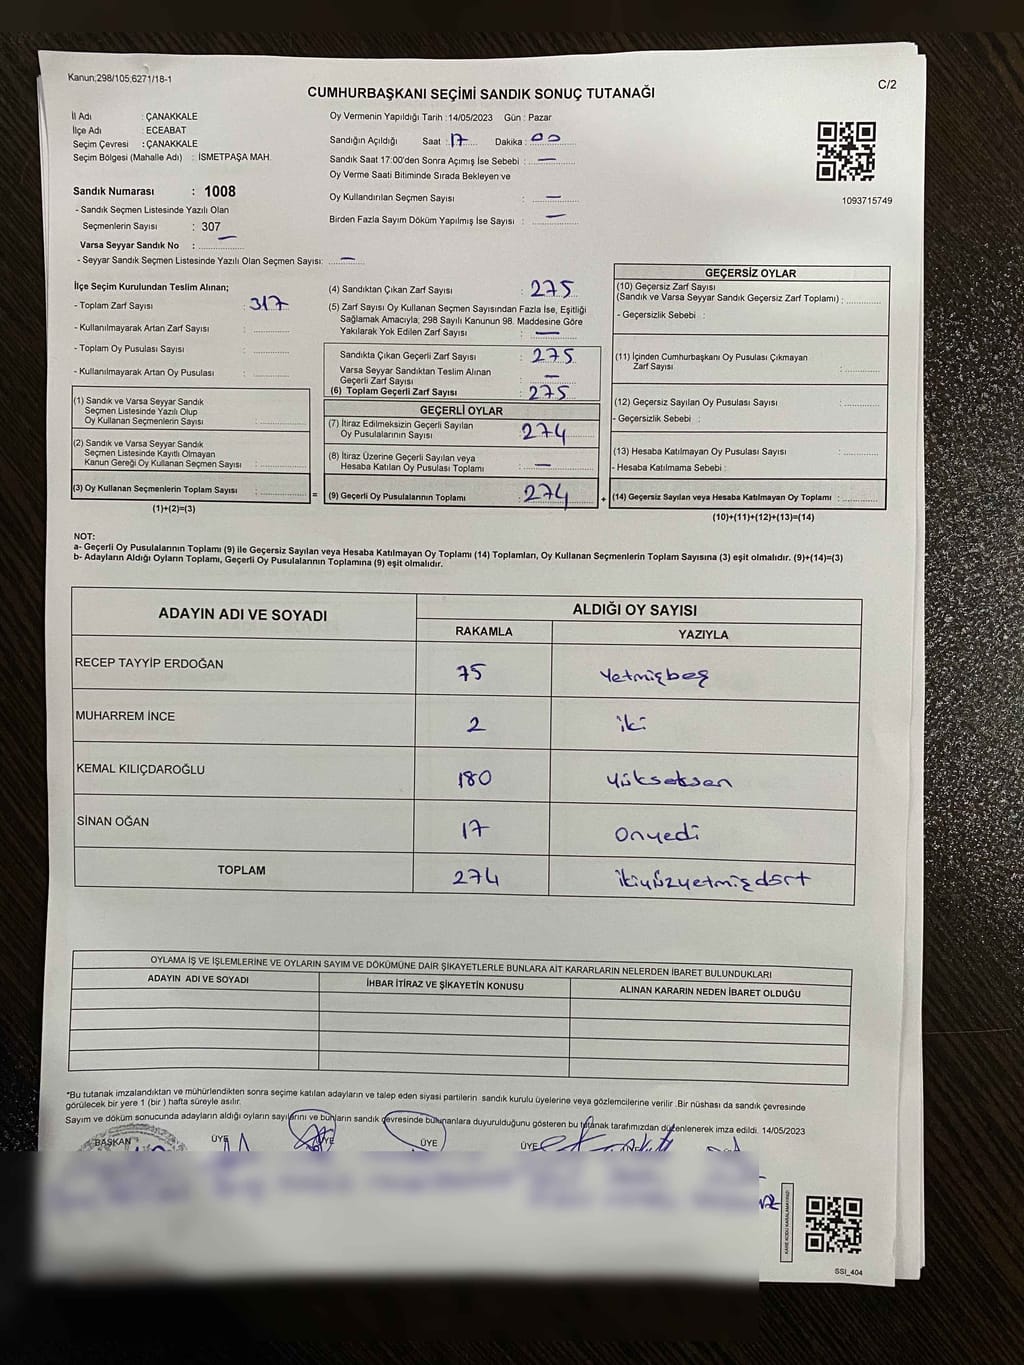 Kanun;298/105;6271/18-1
C/2
CUMHURBAŞKANI SEÇİMİ SANDIK SONUÇ TUTANAĞI
İl Adı : ÇANAKKALE
İlçe Adı : ECEABAT
Seçim Çevresi : ÇANAKKALE
Seçim Bölgesi (Mahalle Adı) : İSMETPAŞA MAH.
Sandık Numarası : 1008
- Sandık Seçmen Listesinde Yazılı Olan
Seçmenlerin Sayısı : 307
Varsa Seyyar Sandık No : —
- Seyyar Sandık Seçmen Listesinde Yazılı Olan Seçmen Sayısı: —
Oy Vermenin Yapıldığı Tarih : 14/05/2023 Gün : Pazar
Sandığın Açıldığı Saat : 17 Dakika : 00
Sandık Saat 17:00'den Sonra Açımış İse Sebebi : —
Oy Verme Saati Bitiminde Sırada Bekleyen ve
Oy Kullandırılan Seçmen Sayısı : —
Birden Fazla Sayım Döküm Yapılmış İse Sayısı : —
1093715749
İlçe Seçim Kurulundan Teslim Alınan;
- Toplam Zarf Sayısı : 317
- Kullanılmayarak Artan Zarf Sayısı :
- Toplam Oy Pusulası Sayısı :
- Kullanılmayarak Artan Oy Pusulası :
(1) Sandık ve Varsa Seyyar Sandık
Seçmen Listesinde Yazılı Olup
Oy Kullanan Seçmenlerin Sayısı :
(2) Sandık ve Varsa Seyyar Sandık
Seçmen Listesinde Kayıtlı Olmayan
Kanun Gereği Oy Kullanan Seçmen Sayısı :
(3) Oy Kullanan Seçmenlerin Toplam Sayısı :
(1)+(2)=(3)
(4) Sandıktan Çıkan Zarf Sayısı : 275
(5) Zarf Sayısı Oy Kullanan Seçmen Sayısından Fazla İse, Eşitliği
Sağlamak Amacıyla; 298 Sayılı Kanunun 98. Maddesine Göre
Yakılarak Yok Edilen Zarf Sayısı : —
Sandıkta Çıkan Geçerli Zarf Sayısı : 275
Varsa Seyyar Sandıktan Teslim Alınan
Geçerli Zarf Sayısı : —
(6) Toplam Geçerli Zarf Sayısı : 275
GEÇERLİ OYLAR
(7) İtiraz Edilmeksizin Geçerli Sayılan
Oy Pusulalarının Sayısı : 274
(8) İtiraz Üzerine Geçerli Sayılan veya
Hesaba Katılan Oy Pusulası Toplamı : —
= (9) Geçerli Oy Pusulalarının Toplamı : 274 +
GEÇERSİZ OYLAR
(10) Geçersiz Zarf Sayısı
(Sandık ve Varsa Seyyar Sandık Geçersiz Zarf Toplamı) :
- Geçersizlik Sebebi :
(11) İçinden Cumhurbaşkanı Oy Pusulası Çıkmayan
Zarf Sayısı :
(12) Geçersiz Sayılan Oy Pusulası Sayısı :
- Geçersizlik Sebebi :
(13) Hesaba Katılmayan Oy Pusulası Sayısı :
- Hesaba Katılmama Sebebi :
(14) Geçersiz Sayılan veya Hesaba Katılmayan Oy Toplamı :
(10)+(11)+(12)+(13)=(14)
NOT:
a- Geçerli Oy Pusulalarının Toplamı (9) ile Geçersiz Sayılan veya Hesaba Katılmayan Oy Toplamı (14) Toplamları, Oy Kullanan Seçmenlerin Toplam Sayısına (3) eşit olmalıdır. (9)+(14)=(3)
b- Adayların Aldığı Oyların Toplamı, Geçerli Oy Pusulalarının Toplamına (9) eşit olmalıdır.
ADAYIN ADI VE SOYADI ALDIĞI OY SAYISI
RAKAMLA YAZIYLA
RECEP TAYYİP ERDOĞAN 75 Yetmişbeş
MUHARREM İNCE 2 iki
KEMAL KILIÇDAROĞLU 180 Yükseksen
SİNAN OĞAN 17 Onyedi
TOPLAM 274 ikiyüzyetmişdört
OYLAMA İŞ VE İŞLEMLERİNE VE OYLARIN SAYIM VE DÖKÜMÜNE DAİR ŞİKAYETLERLE BUNLARA AİT KARARLARIN NELERDEN İBARET BULUNDUKLARI
ADAYIN ADI VE SOYADI İHBAR İTİRAZ VE ŞİKAYETİN KONUSU ALINAN KARARIN NEDEN İBARET OLDUĞU
*Bu tutanak imzalandıktan ve mühürlendikten sonra seçime katılan adayların ve talep eden siyasi partilerin sandık kurulu üyelerine veya gözlemcilerine verilir .Bir nüshası da sandık çevresinde
görülecek bir yere 1 (bir ) hafta süreyle asılır.
Sayım ve döküm sonucunda adayların aldığı oyların sayılarını ve bunların sandık çevresinde bulunanlara duyurulduğunu gösteren bu tutanak tarafımızdan düzenlenerek imza edildi. 14/05/2023
BAŞKAN ÜYE ÜYE ÜYE ÜYE
KARE KODU KARALAMAYINIZ!
SSI_404